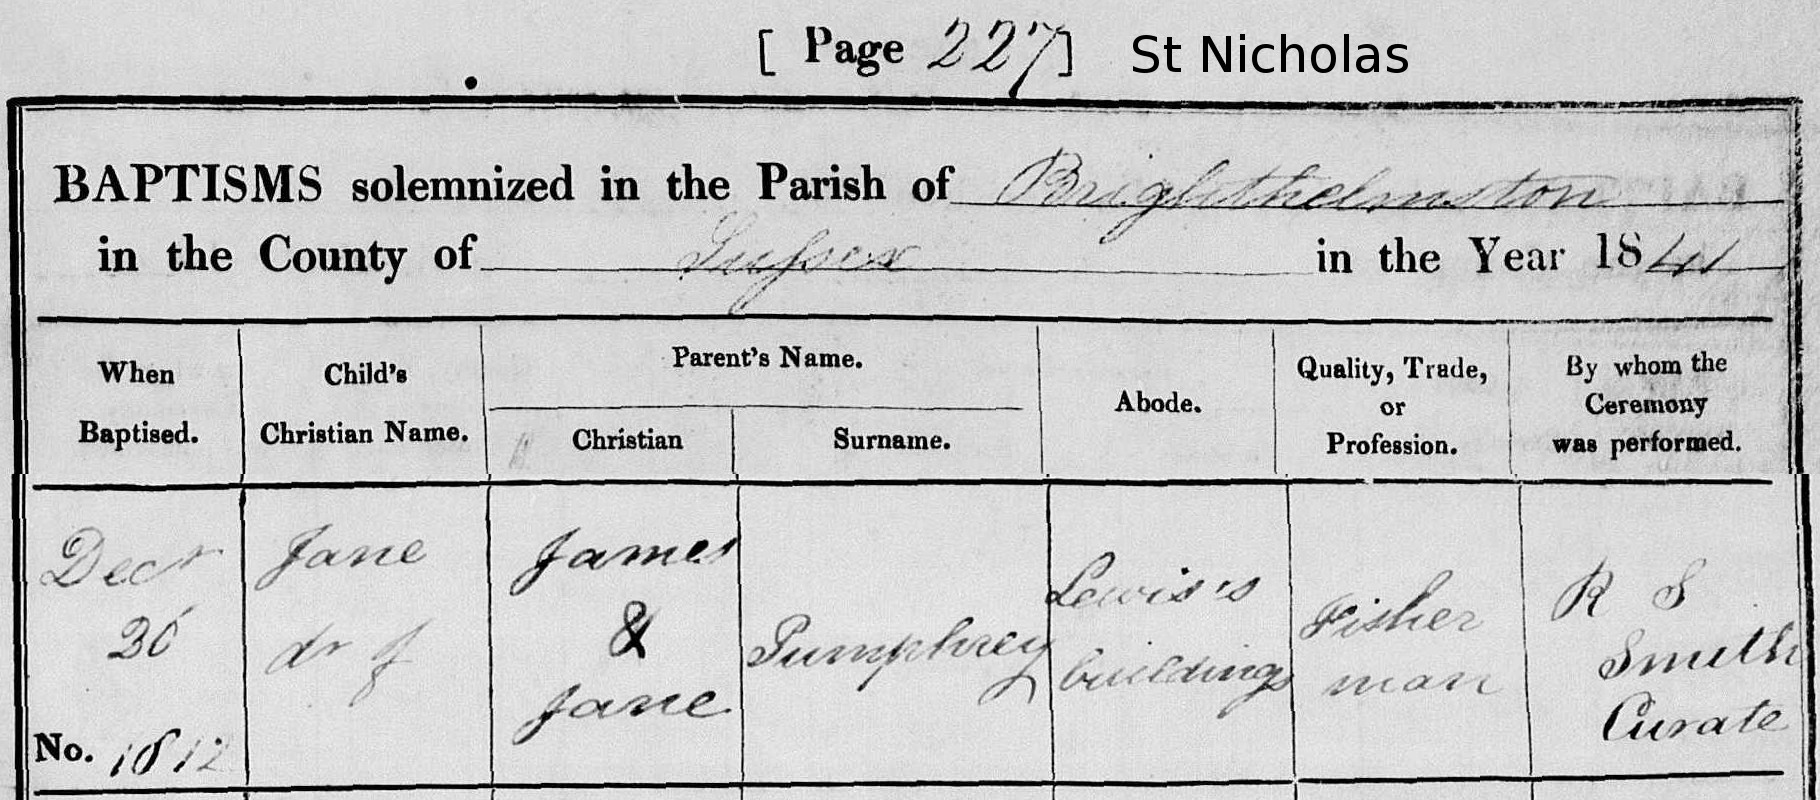 [ Page 227] St Nicholas
BAPTISMS solemnized in the Parish of Brighthelmston
in the County of Sussex in the Year 1841
When
Baptised.
Child's
Christian Name.
Parent's Name.
Christian
Surname.
Abode.
Quality, Trade,
or
Profession.
By whom the
Ceremony
was performed.
Decr
26
No. 1812
Jane
dr of
James
&
Jane
Pumphrey
Lewis's
buildings
Fisher
man
R S
Smith
Curate